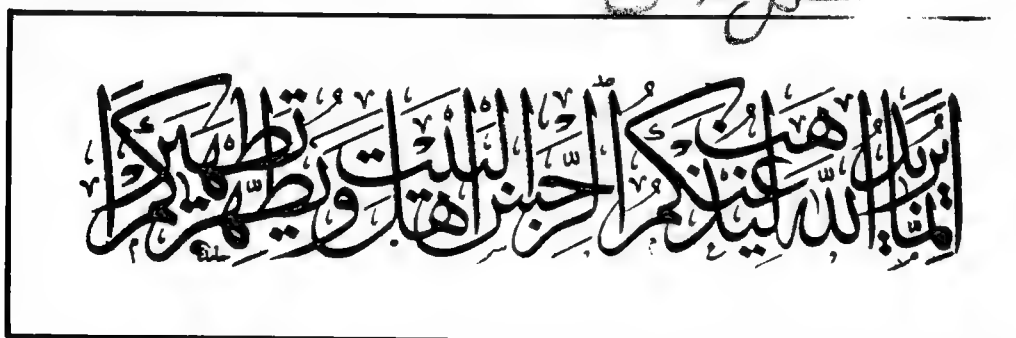 إِنَّمَا يُرِيدُ اللَّهُ لِيُذْهِبَ عَنكُمُ الرِّجْسَ أَهْلَ الْبَيْتِ وَيُطَهِّرَكُمْ تَطْهِيرًا